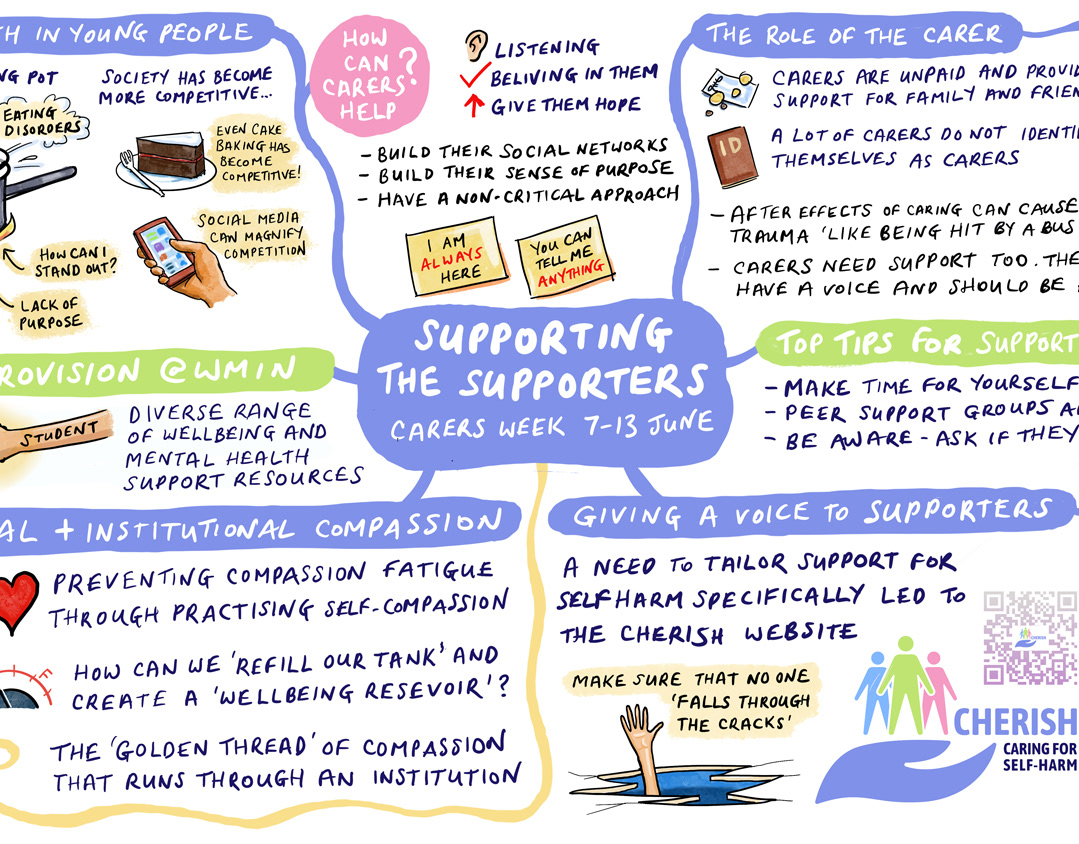 TH IN YOUNG PEOPLE
NG POT
EATING
DISORDERS
HOW CAN I
STAND OUT?
LACK OF
PURPOSE
SOCIETY HAS BECOME
MORE COMPETITIVE...
EVEN CAKE
BAKING HAS
BECOME
COMPETITIVE!
SOCIAL MEDIA
CAN MAGNIFY
COMPETITION
HOW
CAN
CARERS
HELP
?
LISTENING
BELIVING IN THEM
GIVE THEM HOPE
- BUILD THEIR SOCIAL NETWORKS
- BUILD THEIR SENSE OF PURPOSE
- HAVE A NON-CRITICAL APPROACH
I AM
ALWAYS
HERE
YOU CAN
TELL ME
ANYTHING
THE ROLE OF THE CARER
CARERS ARE UNPAID AND PROVID
SUPPORT FOR FAMILY AND FRIEN
ID
A LOT OF CARERS DO NOT IDENTI
THEMSELVES AS CARERS
- AFTER EFFECTS OF CARING CAN CAUSE
TRAUMA 'LIKE BEING HIT BY A BUS
- CARERS NEED SUPPORT TOO. THE
HAVE A VOICE AND SHOULD BE
SUPPORTING
THE SUPPORTERS
CARERS WEEK 7-13 JUNE
ROVISION @WMIN
STUDENT
DIVERSE RANGE
OF WELLBEING AND
MENTAL HEALTH
SUPPORT RESOURCES
TOP TIPS FOR SUPPORT
- MAKE TIME FOR YOURSELF
- PEER SUPPORT GROUPS A
- BE AWARE - ASK IF THEY
AL + INSTITUTIONAL COMPASSION
PREVENTING COMPASSION FATIGUE
THROUGH PRACTISING SELF-COMPASSION
F
HOW CAN WE 'REFILL OUR TANK' AND
CREATE A 'WELLBEING RESEVOIR'?
THE 'GOLDEN THREAD' OF COMPASSION
THAT RUNS THROUGH AN INSTITUTION
GIVING A VOICE TO SUPPORTERS
A NEED TO TAILOR SUPPORT FOR
SELFHARM SPECIFICALLY LED TO
THE CHERISH WEBSITE
MAKE SURE THAT NO ONE
'FALLS THROUGH
THE CRACKS'
CHERISH
CHERISH
CARING FOR
SELF-HARM